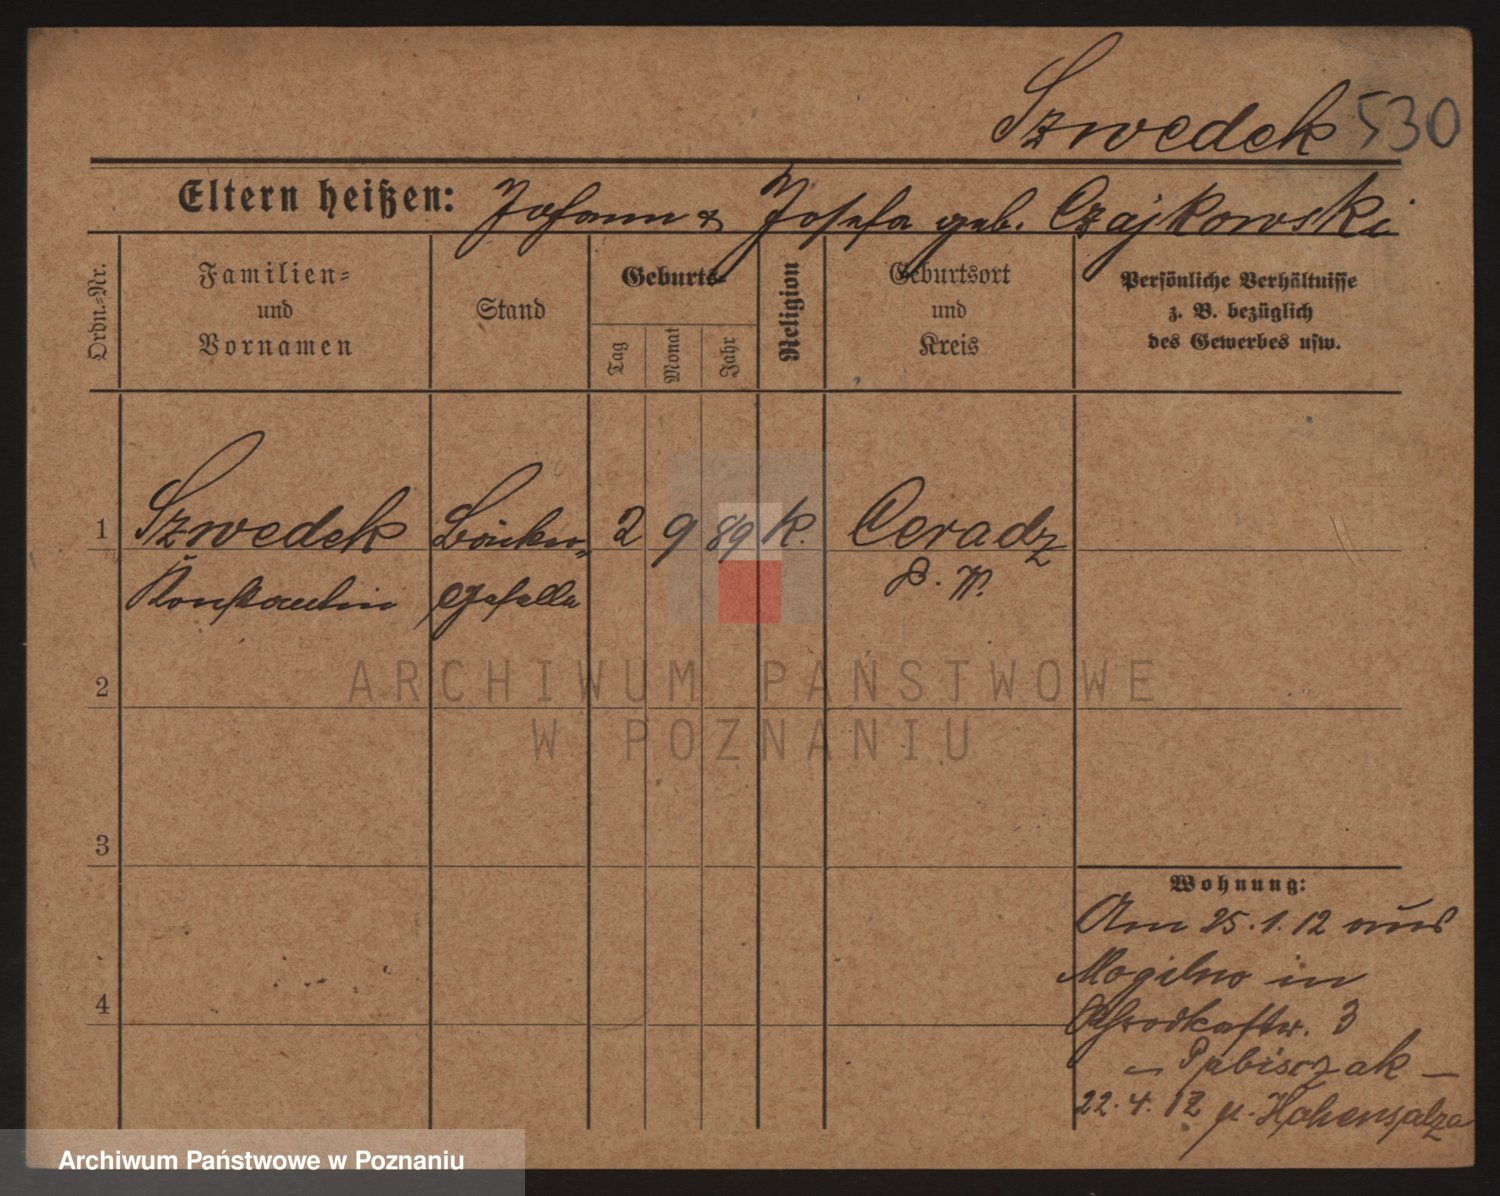 Szwedek 530
Eltern heißen: Johann & Josefa geb. Czajkowski
Ordn.-Nr.
Familien- und Vornamen
Stand
Geburts-
Tag
Monat
Jahr
Religion
Geburtsort und Kreis
Persönliche Verhältnisse
z. B. bezüglich
des Gewerbes usw.
1 Szwedek Bäcker- 2 9 89 K. Ceradz
Konstantin Geselle P. W.
ARCHIWUM PAŃSTWOWE
2
W POZNANIU
3
Wohnung:
Am 25.1.12 aus
Mogilno in
4
Schrodkastr. 3
– Pabiszak –
22.4.12 n. Hohensalza
Archiwum Państwowe w Poznaniu